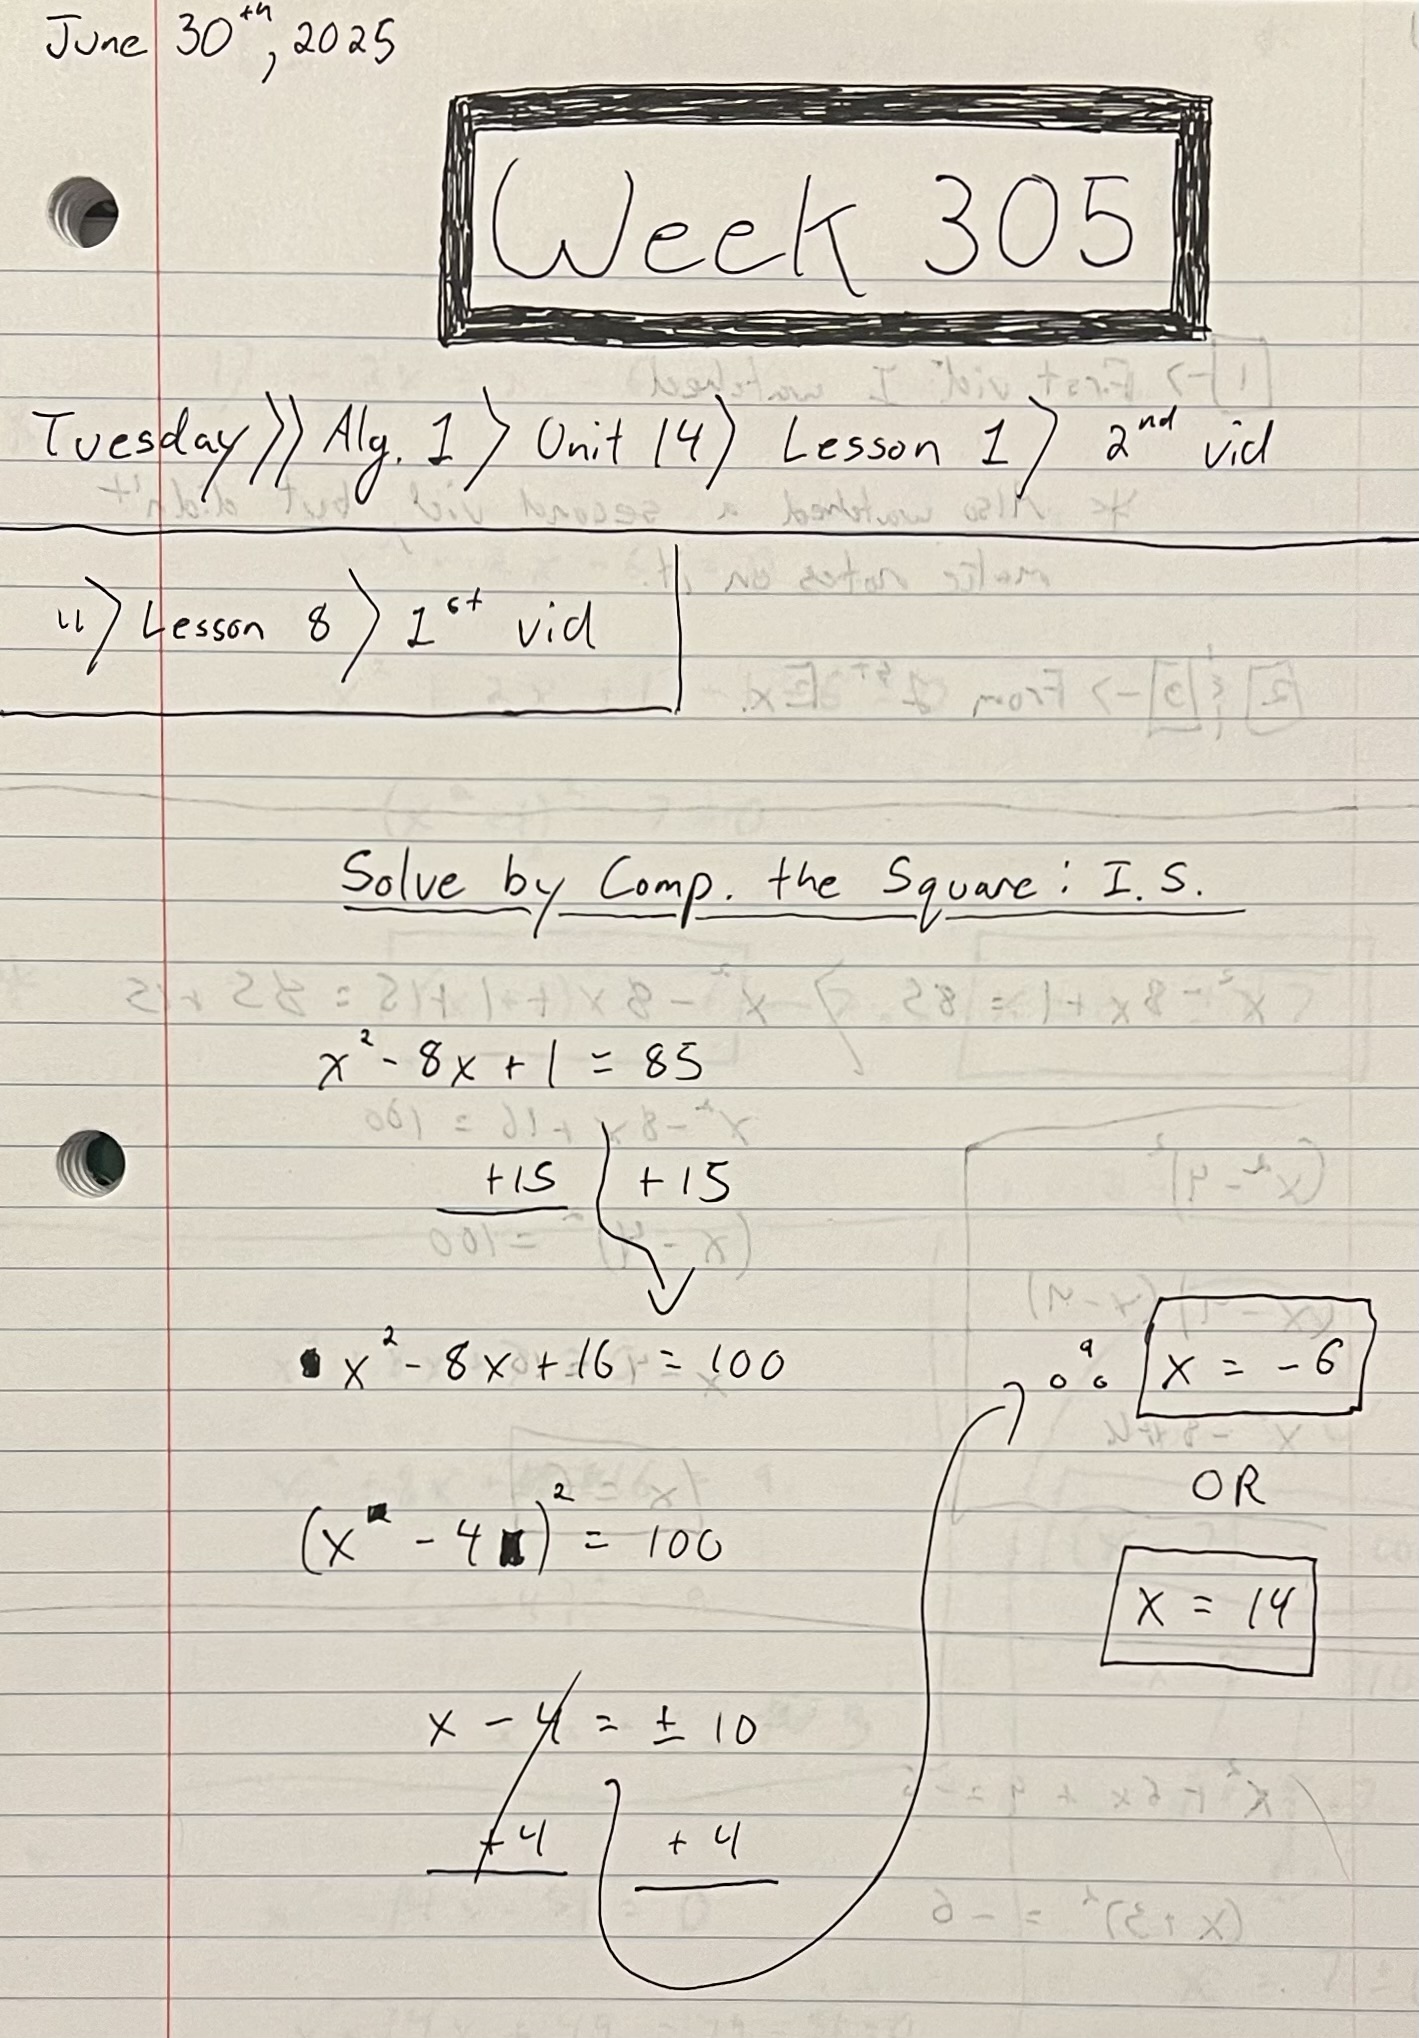 June 30th, 2025
Week 305
Tuesday >> Alg. 1 > Unit 14 > Lesson 1 > 2nd vid
" > Lesson 8 > 1st vid
Solve by Comp. the Square: I.S.
x² - 8x + 1 = 85
+15 +15
x² - 8x + 16 = 100
(x - 4)² = 100
x - 4 = ± 10
+4 +4
∴ x = -6
OR
x = 14